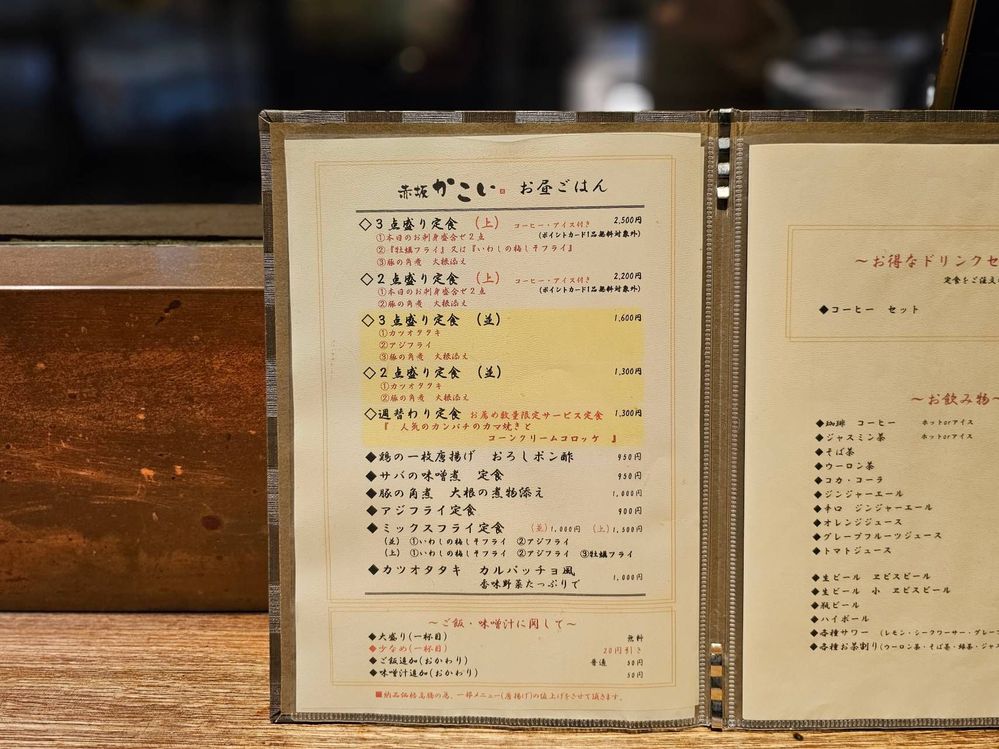 赤坂 かこい お昼ごはん
◇3点盛り定食 (上) コーヒー・アイス付き 2,500円
①本日のお刺身盛合せ2点 (ポイントカード1品無料対象外)
②『牡蠣フライ』又は『いわしの梅しそフライ』
③豚の角煮 大根添え
◇2点盛り定食 (上) コーヒー・アイス付き 2,200円
①本日のお刺身盛合せ2点 (ポイントカード1品無料対象外)
②豚の角煮 大根添え
◇3点盛り定食 (並) 1,600円
①カツオタタキ
②アジフライ
③豚の角煮 大根添え
◇2点盛り定食 (並) 1,300円
①カツオタタキ
②豚の角煮 大根添え
◇週替わり定食 お薦め数量限定サービス定食 1,300円
『 人気のカンパチのカマ焼きと
コーンクリームコロッケ 』
◆鶏の一枚唐揚げ おろしポン酢 950円
◆サバの味噌煮 定食 950円
◆豚の角煮 大根の煮物添え 1,000円
◆アジフライ定食 900円
◆ミックスフライ定食 (並)1,000円 (上)1,500円
(並) ①いわしの梅しそフライ ②アジフライ
(上) ①いわしの梅しそフライ ②アジフライ ③牡蠣フライ
◆カツオタタキ カルパッチョ風 1,000円
香味野菜たっぷりで
～ご飯・味噌汁に関して～
◆大盛り(一杯目) 無料
◆少なめ(一杯目) 20円引き
◆ご飯追加(おかわり) 普通 50円
◆味噌汁追加(おかわり) 50円
■納品価格高騰の為、一部メニュー(唐揚げ)の値上げをさせて頂きます。
～お得なドリンクセ
定食をご注文
◆コーヒー セット
～お飲み物～
◆珈琲 コーヒー ホットorアイス
◆ジャスミン茶 ホットorアイス
◆そば茶
◆ウーロン茶
◆コカ・コーラ
◆ジンジャーエール
◆辛口 ジンジャーエール
◆オレンジジュース
◆グレープフルーツジュース
◆トマトジュース
◆生ビール ヱビスビール
◆生ビール 小 ヱビスビール
◆瓶ビール
◆ハイボール
◆各種サワー (レモン・シークワーサー・グレー
◆各種お茶割り(ウーロン茶・そば茶・緑茶・ジャス